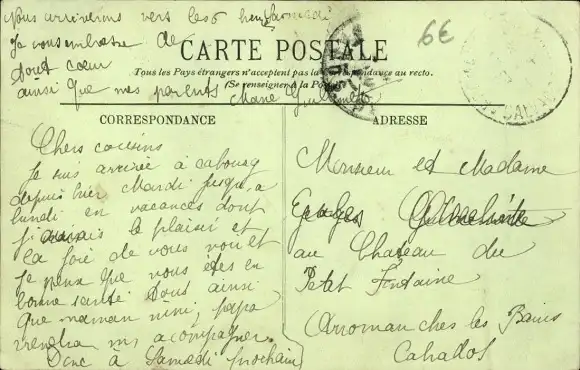 Nous arriverons vers les 6 heures samedi
Je vous embrasse de
tout cœur
ainsi que mes parents
Marie
6€
CARTE POSTALE
Tous les Pays étrangers n'acceptent pas la correspondance au recto.
(Se renseigner à la Poste)
CORRESPONDANCE
Chers cousins
Je suis arrivée à cabourg
depuis hier Mardi jusqu,a
lundi en vacances dont
j'aurais le plaisir et
la joie de vous voir et
Je pense que vous êtes en
bonne santé tous ainsi
que maman nini, papa
viendra m, acompagner
Donc à Samedi prochain
ADRESSE
Monsieur et Madame
Georges
au Chateau du
Petit Fontaine
Arromanches les Bains
Calvados